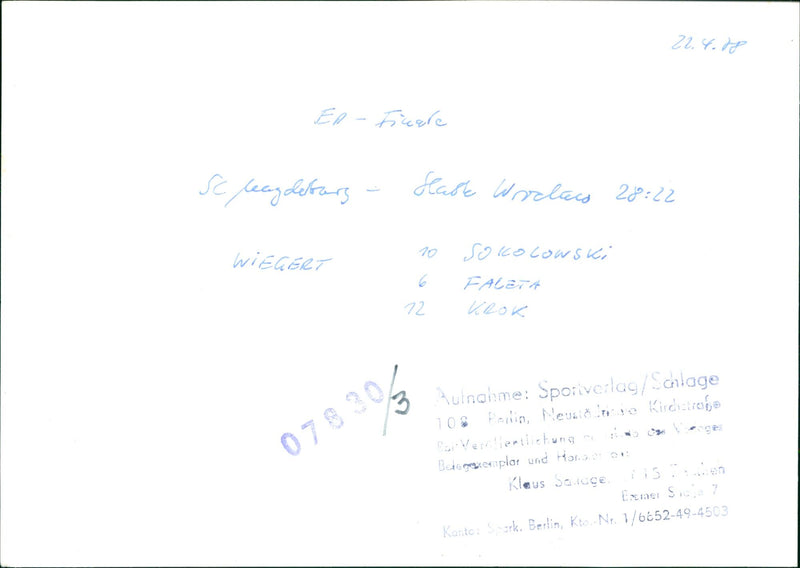 22.4.78
EP - Finale
SC Magdeburg - Slask Wroclaw 28:22
WIEGERT 10 SOKOLOWSKI
6 FALETA
12 KROK
07830/3
Aufnahme: Sportverlag/Schlage
108 Berlin, Neustädtische Kirchstraße
Zur Veröffentlichung des Verlages
Belegexemplar und Honorar
Klaus Schlage
Straße 7
Konto: Spark. Berlin, Kto.-Nr. 1/6652-49-4503